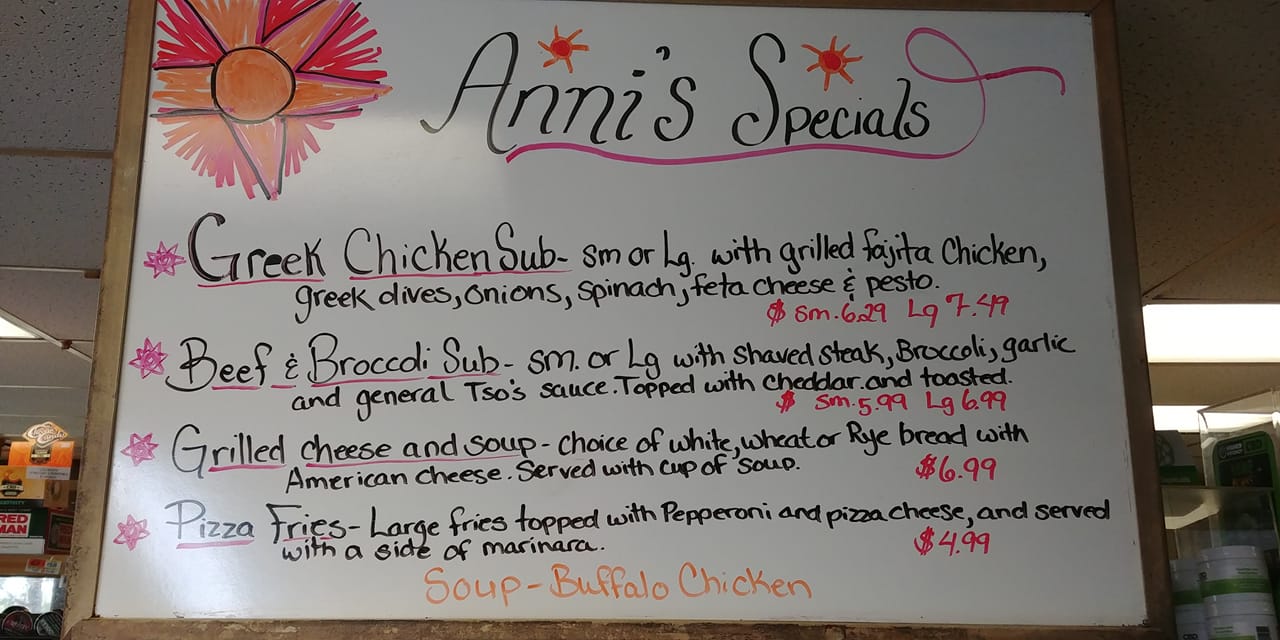 Anni's Specials
Greek Chicken Sub- sm or Lg. with grilled fajita Chicken,
greek olives, onions, spinach, feta cheese & pesto.
$ sm. 6.29 Lg 7.49
Beef & Broccoli Sub- sm. or Lg with shaved steak, Broccoli, garlic
and general Tso's sauce. Topped with cheddar. and toasted.
$ sm. 5.99 Lg 6.99
Grilled cheese and soup- choice of white, wheat or Rye bread with
American cheese. Served with cup of soup.
$6.99
Pizza Fries- Large fries topped with Pepperoni and pizza cheese, and served
with a side of marinara.
$4.99
Soup- Buffalo Chicken
RED
MAN